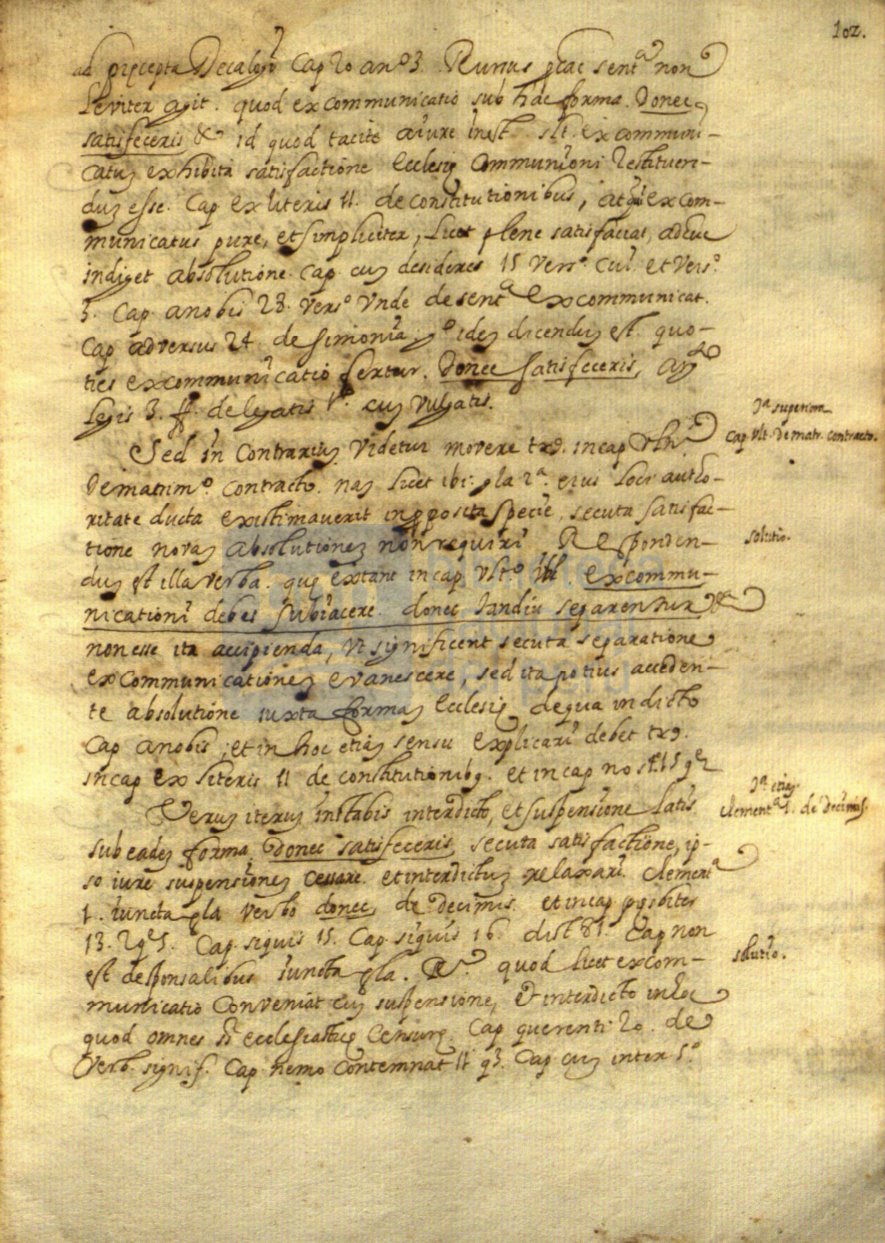 102.
ad precepta Decalogi Cap 20 an.º 3. Rursus hac sent.ª non
leviter agit. quod excommunicatio sub hac forma. Donec
satisfeceris &ª id quod tacite a iure inest. slt. excommuni-
catuz exhibita satisfactione Ecclesię Communioni restituen-
duz esse. Cap Ex literis 11. de constitutionibus, excom-
municatus pure, et simpliciter, licet plene satisfaciat, adhuc
indiget absolutione. Cap. cuz desideres 15 Vers.º Cul. et Vers.º
3. Cap. anobis 28. Vers.º Vnde de sent.ª Excommunicat.
Cap adversus 24. de simonia idez dicenduz est. quo-
ties excommunicatio fertur. Donec satisfeceris,
legis 3. ff. de legatis 1.º cuz vulgatis.
Jª superiora
Cap. Vlt. de matr. contracto.
Sed in Contrariuz Videtur movere tex. in cap Vltº
de matrim.º contracto. naz licet ibi. gla 2.ª eius loci autho-
ritate ducta existimaverit in pposita specie, secuta satisfac-
tione novaz absolutionez non requiri. Responden-
solutio.
duz est illa verba. quę extant in cap. Vlt.º Excommu-
nicationi debes subiacere. donec tandiu separentur &ª
non esse ita accipienda, vt significent secuta separatione
excommunicationez evanescere, sed ita potius acceden-
te absolutione iuxta formaz Ecclesię de qua in dicto
Cap anobis, et in hoc etiaz sensu explicari debet tex.
in cap Ex literis 11 de constitutionibq. et in cap nos
Jª etiaz
Clement.ª 1. de Decimis.
Veruz iteruz instabis interdicto, et suspensione latis
sub eadez forma, donec satisfeceris, secuta satisfactione, ip-
so iure suspensionez Cessare. et interdictuz relaxari. Clement.ª
1. iuncta gla verbo donec, de decimis. et in cap
13. 2 q 5. Cap. siquis 15. Cap. siquis 16. dist 81. Cap non
est de sponsalibus iuncta gla. quod licet excom-
solutio.
municatio Conveniat cuz suspensione, et interdicto in hoc
quod omnes st ecclesiasticę Censurę. Cap querenti 20. de
Verb. signif. Cap nemo contemnat 11 q 3. Cap cuz inter 5.º